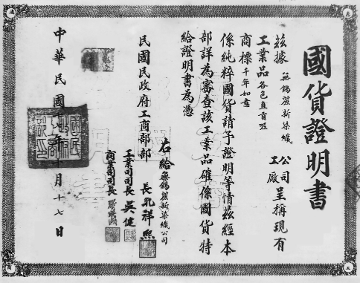 國貨證明書
茲據無錫麗新染織公司工廠呈稱現有
工業品各色直貢呢
商標千年如意
係純粹國貨請予證明等情茲經本
部詳為審查該工業品確係國貨特
給證明書為憑
右給無錫麗新染織公司
民國民政府工商部部長孔祥熙
工業司司長吳健
商業司司長
中華民國年十月十七日